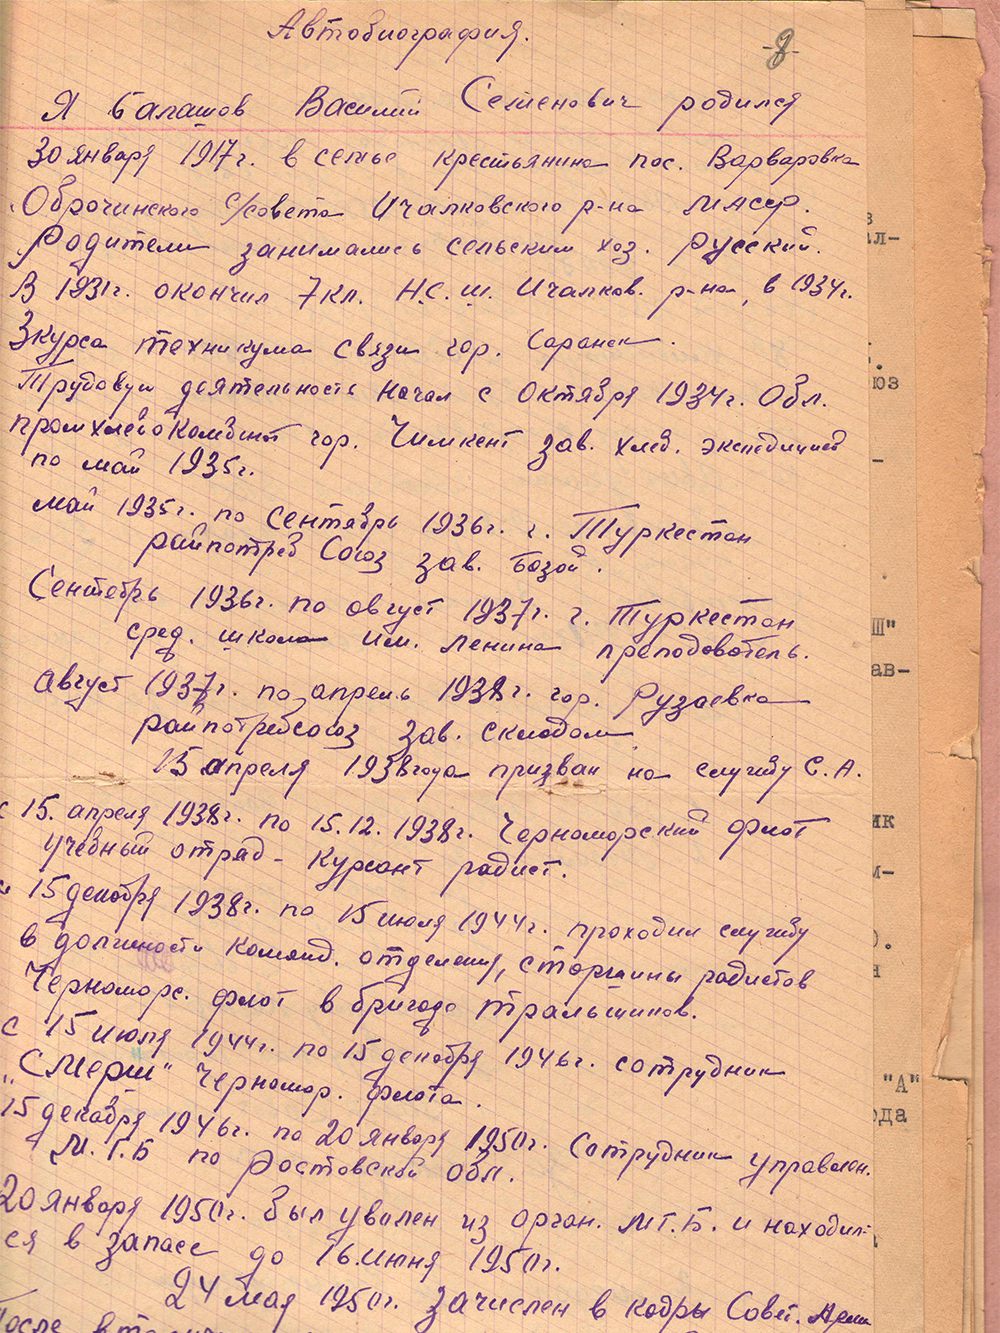 Автобиография.
-8-
Я Балашов Василий Семенович родился
30 января 1917г. в семье крестьянина пос. Варваровка
Оброчинского с/совета Ичалковского р-на МАССР.
Родители занимались сельским хоз. Русский.
В 1931г. окончил 7кл. Н.С.Ш. Ичалков. р-на, в 1934г.
3 курса техникума связи гор. Саранск.
Трудовую деятельность начал с октября 1934г. Обл.
промхлебокомбинат гор. Чимкент зав. хлеб. экспедицией
по май 1935г.
май 1935г. по сентябрь 1936г. г. Туркестан
райпотреб Союз зав. Базой.
Сентябрь 1936г. по август 1937г. г. Туркестан
сред. школа им. Ленина преподователь.
Август 1937г. по апрель 1938г. гор. Рузаевка
райпотребсоюз зав. складом
15 апреля 1938 года призван на службу С.А.
с 15. апреля 1938г. по 15.12.1938г. Черноморский флот
учебный отряд - Курсант радист.
15 декабря 1938г. по 15 июля 1944г. проходил службу
в должности команд. отделения, старшины радистов
Черноморс. флот в бригаде тральщиков.
С 15 июля 1944г. по 15 декабря 1946г. сотрудник
"Смерш" Черномор. флота.
15 декабря 1946г. по 20 января 1950г. Сотрудник управлен.
М.Г.Б по Ростовской обл.
20 января 1950г. был уволен из орган. МГ.Б. и находил-
ся в запасе до 16.июня 1950г.
24 мая 1950г. зачислен в кадры Совет. Арми
После
ал-
юз
Ш"
ав-
ик
"А"
ода